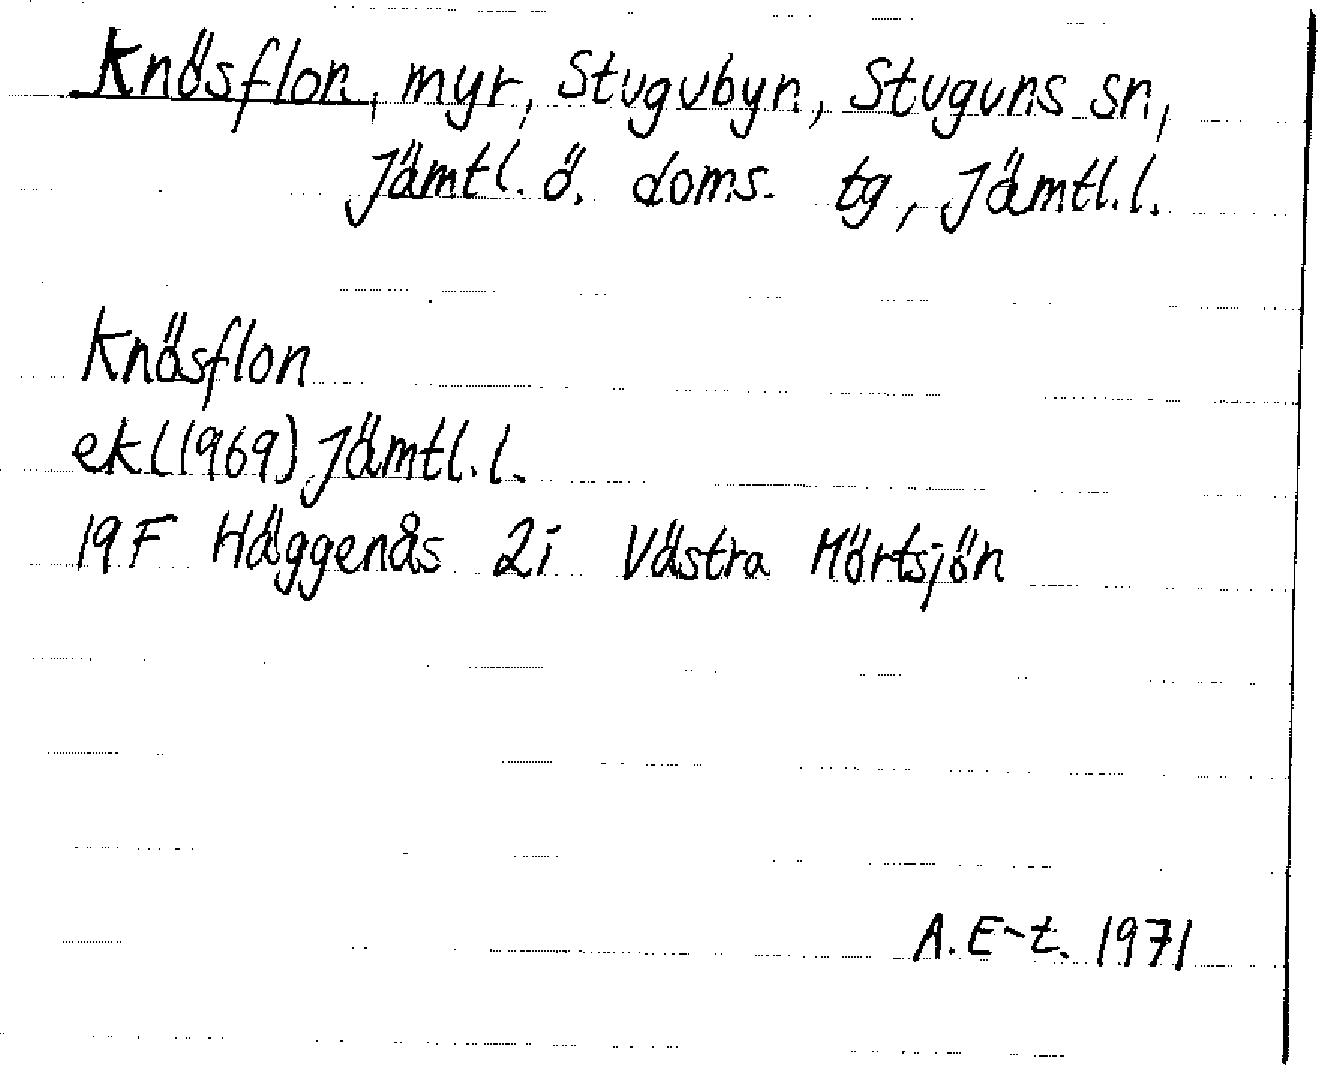 Knösflon, myr, Stugubyn, Stuguns sn,
Jämtl. ö. doms. tg, Jämtl. l.
Knösflon
ek (1969) Jämtl. l.
19F Häggenås 2i Västra Mörtsjön
A. E-t. 1971